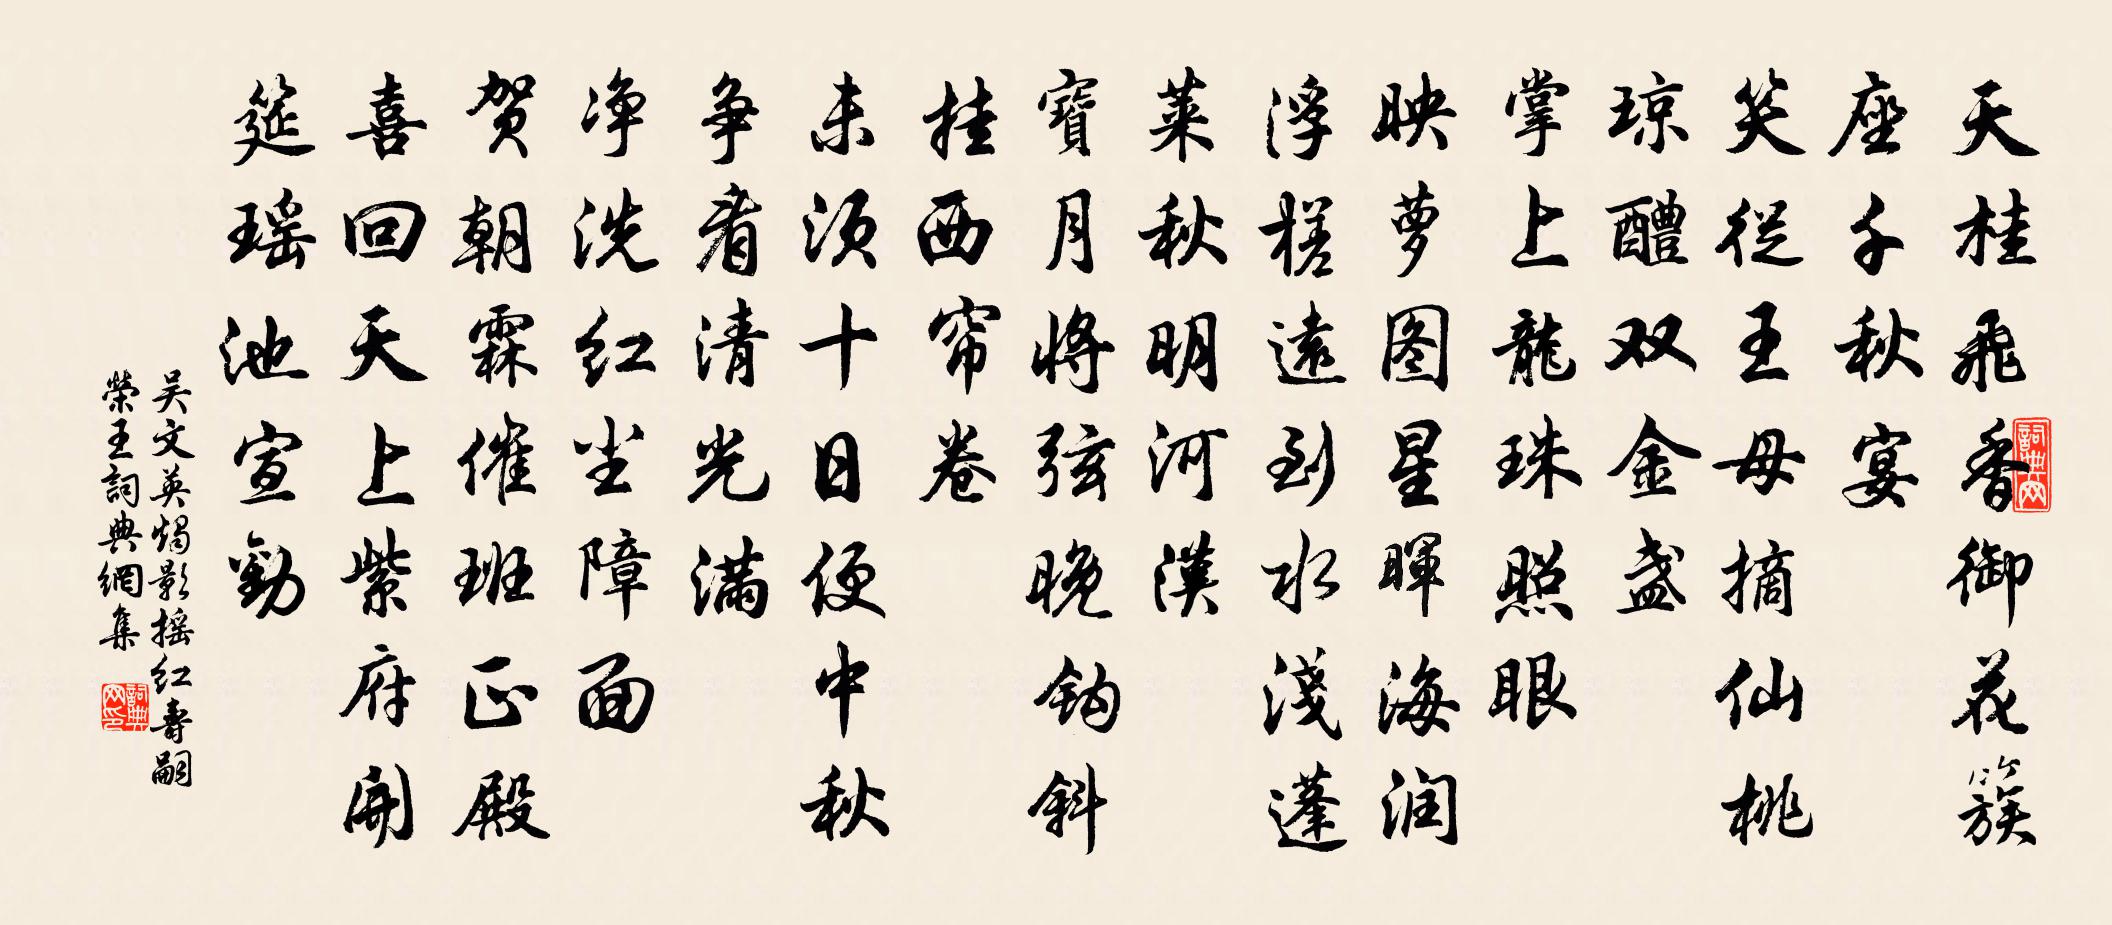 天桂飛香御花簇
座千秋宴
笑從王母摘仙桃
琼醴双金盏
掌上龍珠照眼
映萝图星暉海润
浮槎遠到水淺蓬
莱秋明河漢
寶月將弦晚鈎斜
挂西帘卷
未须十日便中秋
争看清光满
净洗红尘障面
贺朝霖催班正殿
喜回天上紫府開
筵瑶池宣勸
吴文英燭影摇红寿嗣
榮王詞典網集
詞典网
詞典网印